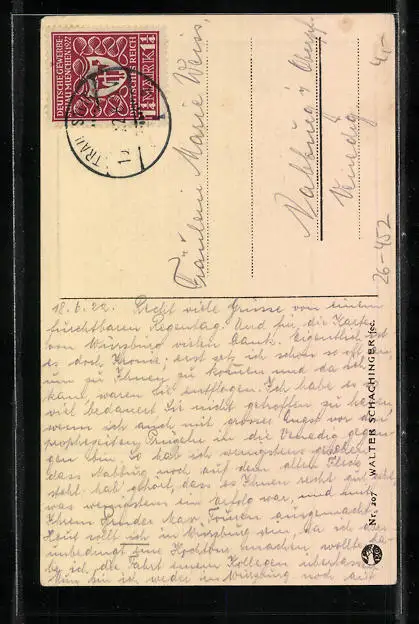 DEUTSCHE GEWERBE-
SCHAU MÜNCHEN 1922
DEUTSCHES REICH
1¼ MARK 1¼
TRAU
Fräulein Marie Weiss
Nabburg / Oberpf.
Venedig
4,-
26-452
18.6.22. Recht viele Grüsse von einem
furchtbaren Regentag. Und für die Karte
von Würzburg vielen Dank. Eigentlich ist
es doch Ironie, erst setz ich schon so oft an,
um zu Ihnen zu kommen und da ich
kann, waren Sie entflogen. Ich habe es
viel bedauert Sie nicht getroffen zu haben,
wenn ich auch mit grosser Angst vor den
prophezeiten Prügeln in die Venedig gegan-
gen bin. So hab ich wenigstens gesehen,
dass Nabburg noch auf dem alten Fleck
steht hab gehört, dass es Ihnen recht gut geht
was wenigstens ein Erfolg war, und mit
Ihrem Bruder Max Touren ausgemacht.
Heut sollt ich in Würzburg sein, da ich aber
unbedingt eine Hochtour machen wollte, ha-
be ich die Fahrt einem Kollegen überlassen.
Nun bin ich weder in Würzburg noch auf
Nr. 207 WALTER SCHACHINGER fec.